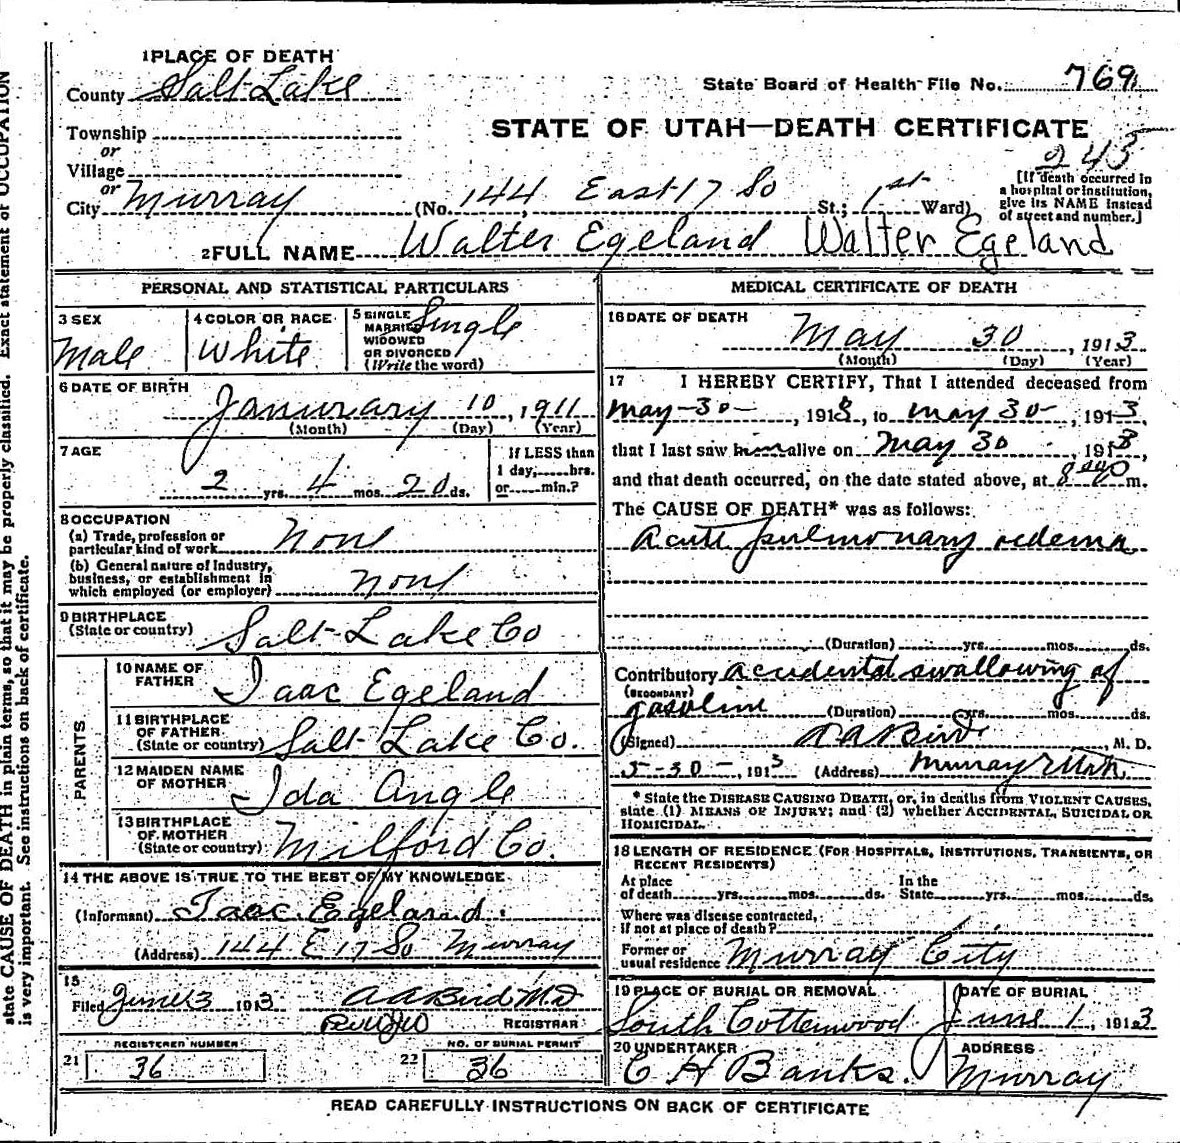 1 PLACE OF DEATH
County Salt Lake
State Board of Health File No. 769
Township
or
Village
or
City Murray (No. 144 East 17 So St.; 1st Ward)
STATE OF UTAH—DEATH CERTIFICATE
243
[If death occurred in a hospital or institution, give its NAME instead of street and number.]
2 FULL NAME Walter Egeland Walter Egeland
PERSONAL AND STATISTICAL PARTICULARS
3 SEX
Male
4 COLOR OR RACE
White
5 SINGLE MARRIED WIDOWED OR DIVORCED (Write the word)
Single
6 DATE OF BIRTH
Janurary 10, 1911
(Month) (Day) (Year)
7 AGE
2 yrs. 4 mos. 20 ds.
If LESS than 1 day, hrs. or min.?
8 OCCUPATION
(a) Trade, profession or particular kind of work None
(b) General nature of Industry, business, or establishment in which employed (or employer) None
9 BIRTHPLACE
(State or country) Salt Lake Co
PARENTS
10 NAME OF FATHER Isaac Egeland
11 BIRTHPLACE OF FATHER (State or country) Salt Lake Co.
12 MAIDEN NAME OF MOTHER Ida Angle
13 BIRTHPLACE OF MOTHER (State or country) Milford Co.
14 THE ABOVE IS TRUE TO THE BEST OF MY KNOWLEDGE
(Informant) Isaac Egeland
(Address) 144 E 17 So Murray
15
Filed June 3 1913 A A Bird M.D
REGISTRAR
REGISTERED NUMBER
21 36
NO. OF BURIAL PERMIT
22 36
MEDICAL CERTIFICATE OF DEATH
16 DATE OF DEATH
May 30, 1913
(Month) (Day) (Year)
17 I HEREBY CERTIFY, That I attended deceased from
May-30-, 1913, to May 30-, 1913,
that I last saw him alive on May 30, 1913,
and that death occurred, on the date stated above, at m.
The CAUSE OF DEATH* was as follows:
Acute pulmonary oedema
(Duration) yrs. mos. ds.
Contributory accidental swallowing of
(SECONDARY)
gasoline (Duration) yrs. mos. ds.
(Signed) A A Bird M. D.
5-30-, 1913 (Address) Murray Utah
* State the DISEASE CAUSING DEATH, or, in deaths from VIOLENT CAUSES, state (1) MEANS OF INJURY; and (2) whether ACCIDENTAL, SUICIDAL OR HOMICIDAL.
18 LENGTH OF RESIDENCE (FOR HOSPITALS, INSTITUTIONS, TRANSIENTS, OR RECENT RESIDENTS)
At place of death yrs. mos. ds. In the State yrs. mos. ds.
Where was disease contracted, if not at place of death?
Former or usual residence Murray City
19 PLACE OF BURIAL OR REMOVAL
South Cottonwood
DATE OF BURIAL
June 1, 1913
20 UNDERTAKER
C H Banks.
ADDRESS
Murray
READ CAREFULLY INSTRUCTIONS ON BACK OF CERTIFICATE
state CAUSE OF DEATH in plain terms, so that it may be properly classified. Exact statement of OCCUPATION
is very important. See instructions on back of certificate.